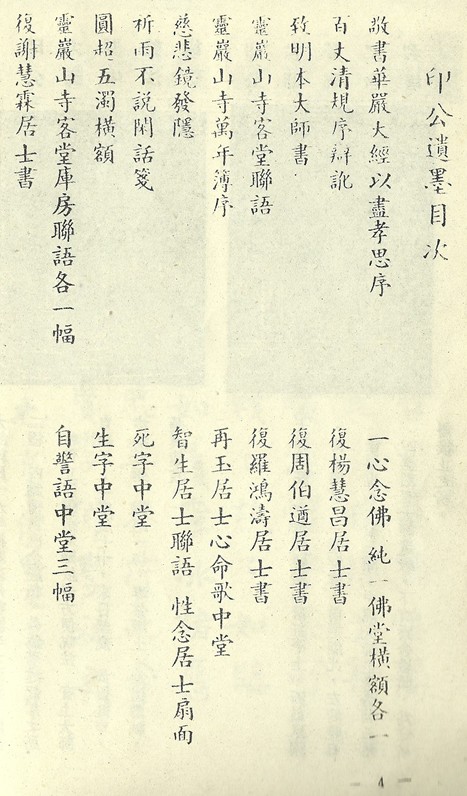 印公遺墨目次
敬書華嚴大經以盡孝思序
百丈清規序辯訛
致明本大師書
靈巖山寺客堂聯語
靈巖山寺萬年簿序
慈悲鏡發隱
祈雨不説閑話箋
圓超五濁橫額
靈巖山寺客堂庫房聯語各一幅
復謝慧霖居士書
一心念佛 純一佛堂橫額各一
復楊慧昌居士書
復周伯遒居士書
復羅鴻濤居士書
再玉居士心命歌中堂
智生居士聯語 性念居士扇面
死字中堂
生字中堂
自警語中堂三幅
— 4 —